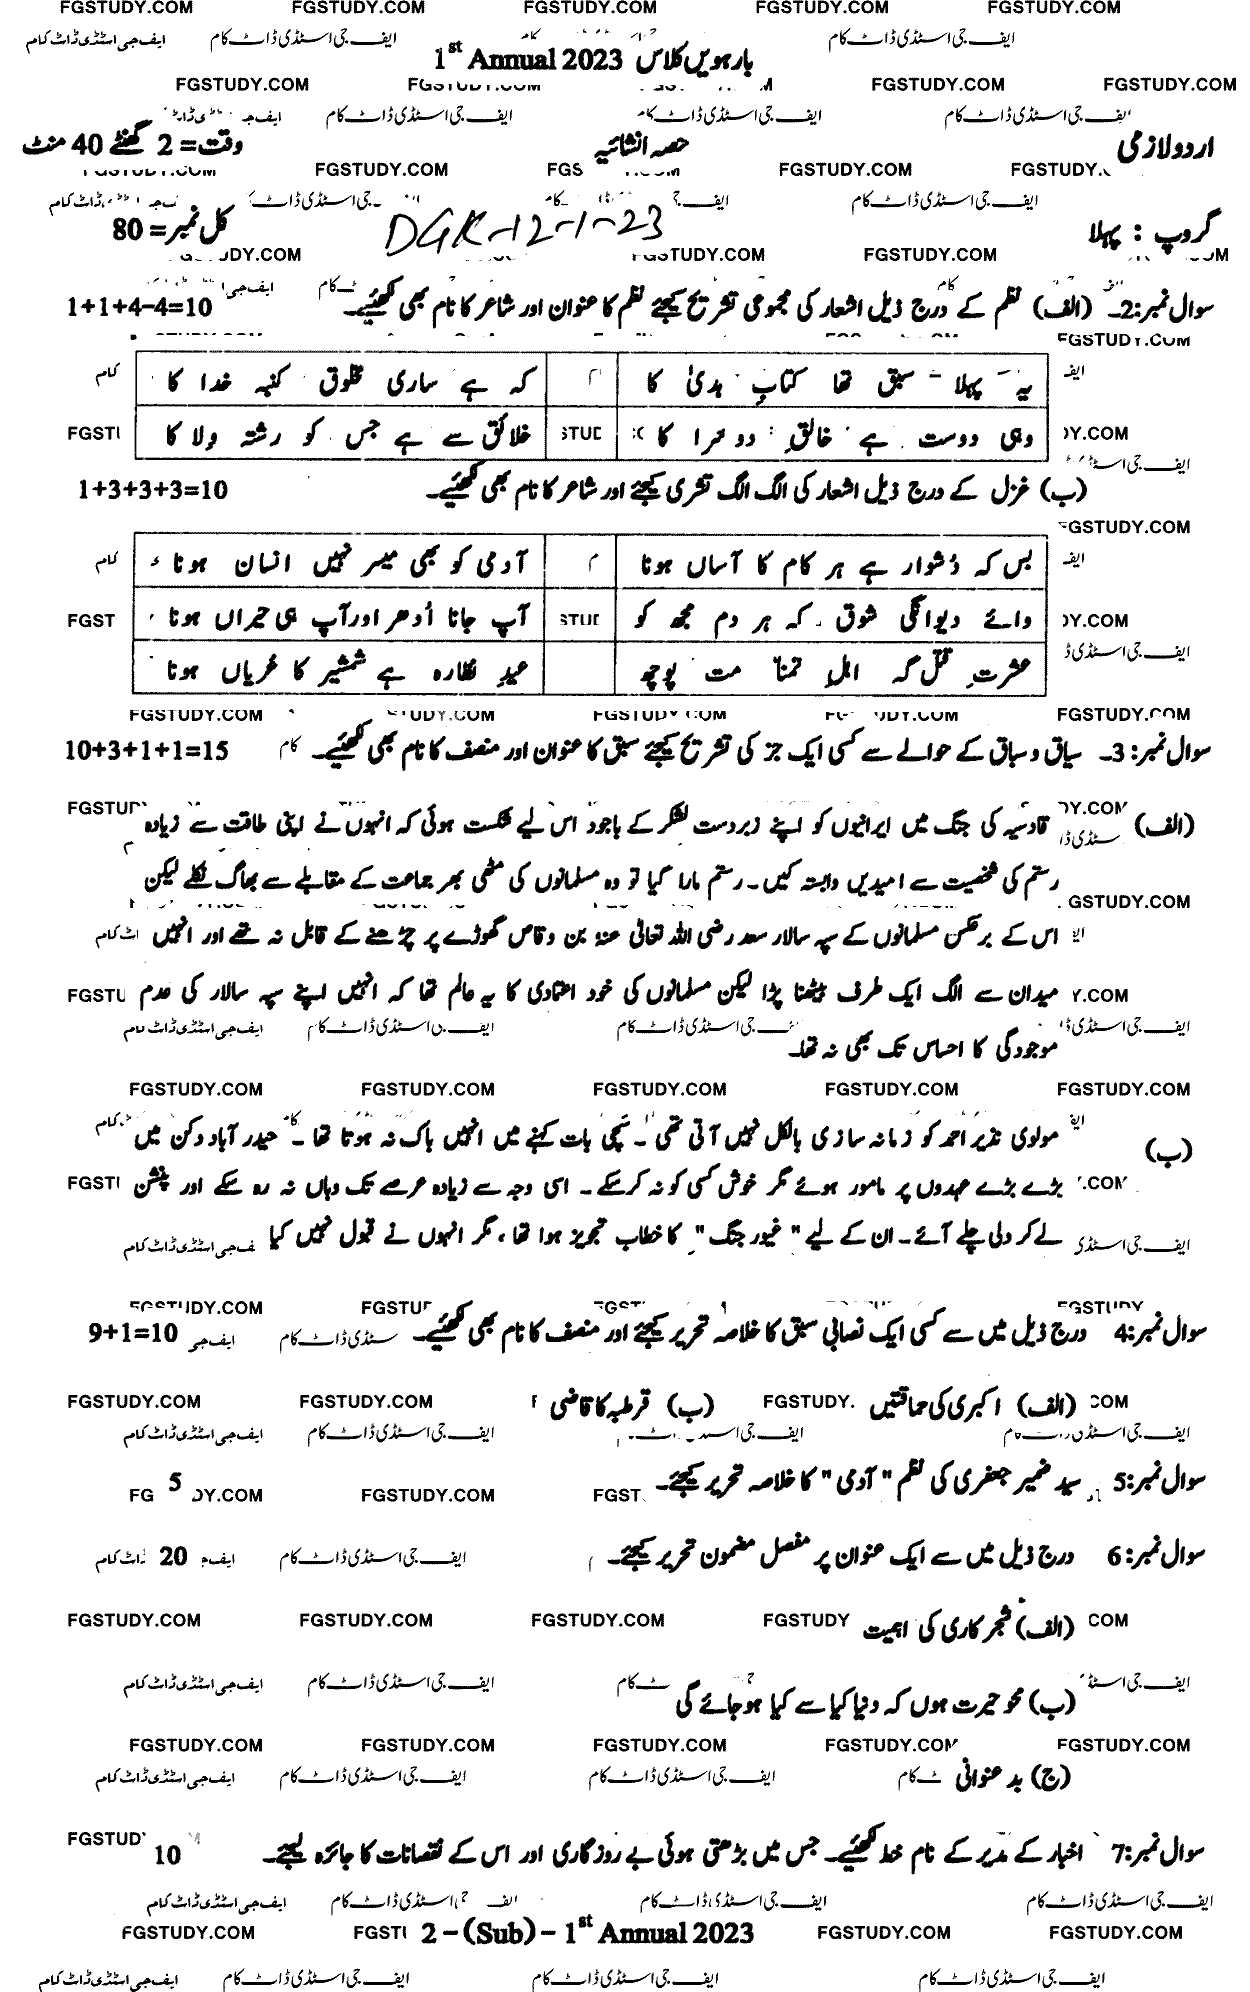 FGSTUDY.COM FGSTUDY.COM FGSTUDY.COM FGSTUDY.COM FGSTUDY.COM
بارہویں کلاس 1st Annual 2023
اردو لازمی حصہ انشائیہ وقت = 2 گھنٹے 40 منٹ
گروپ : پہلا DGK-12-1-23 کل نمبر = 80
سوال نمبر:2۔ (الف) نظم کے درج ذیل اشعار کی مجموعی تشریح کیجئے نظم کا عنوان اور شاعر کا نام بھی لکھیئے۔ 1+1+4-4=10
یہ پہلا سبق تھا کتابِ ہدیٰ کا کہ ہے ساری مخلوق کنبہ خدا کا
وہی دوست ہے خالقِ دوسرا کا خلائق سے ہے جس کو رشتہ ولا کا
(ب) غزل کے درج ذیل اشعار کی الگ الگ تشری کیجئے اور شاعر کا نام بھی لکھیئے۔ 1+3+3+3=10
بس کہ دُشوار ہے ہر کام کا آساں ہونا آدمی کو بھی میسر نہیں انسان ہونا
وائے دیوانگی شوق کہ ہر دم مجھ کو آپ جانا اُدھر اور آپ ہی حیراں ہونا
عشرتِ قتل گہ اہلِ تمنا مت پوچھ عیدِ نظارہ ہے شمشیر کا عُریاں ہونا
سوال نمبر:3۔ سیاق و سباق کے حوالے سے کسی ایک جز کی تشریح کیجئے سبق کا عنوان اور مصنف کا نام بھی لکھیئے۔ 10+3+1+1=15
(الف) قادسیہ کی جنگ میں ایرانیوں کو اپنے زبردست لشکر کے باجود اس لیے شکست ہوئی کہ انہوں نے اپنی طاقت سے زیادہ
رستم کی شخصیت سے امیدیں وابستہ کیں۔ رستم مارا گیا تو وہ مسلمانوں کی مٹھی بھر جماعت کے مقابلے سے بھاگ نکلے لیکن
اس کے برعکس مسلمانوں کے سپہ سالار سعد رضی اللہ تعالیٰ عنہ بن وقاص گھوڑے پر چڑھنے کے قابل نہ تھے اور انہیں
میدان سے الگ ایک طرف بیٹھنا پڑا لیکن مسلمانوں کی خود اعتمادی کا یہ عالم تھا کہ انہیں اپنے سپہ سالار کی عدم
موجودگی کا احساس تک بھی نہ تھا۔
FGSTUDY.COM FGSTUDY.COM FGSTUDY.COM FGSTUDY.COM FGSTUDY.COM
(ب) مولوی نذیر احمد کو زمانہ سازی بالکل نہیں آتی تھی۔ سچی بات کہنے میں انہیں باک نہ ہوتا تھا۔ حیدر آباد دکن میں
بڑے بڑے عہدوں پر مامور ہوئے مگر خوش کسی کو نہ کرسکے۔ اسی وجہ سے زیادہ عرصے تک وہاں نہ رہ سکے اور پنشن
لے کر دلی چلے آئے۔ ان کے لیے "غیور جنگ" کا خطاب تجویز ہوا تھا، مگر انہوں نے قبول نہیں کیا
سوال نمبر:4 درج ذیل میں سے کسی ایک نصابی سبق کا خلاصہ تحریر کیجئے اور مصنف کا نام بھی لکھیئے۔ 9+1=10
(الف) اکبری کی حماقتیں (ب) قرطبہ کا قاضی
سوال نمبر:5 سید ضمیر جعفری کی نظم "آدمی" کا خلاصہ تحریر کیجئے۔ 5
سوال نمبر:6 درج ذیل میں سے ایک عنوان پر مفصل مضمون تحریر کیجئے۔ 20
(الف) شجر کاری کی اہمیت
(ب) محو حیرت ہوں کہ دنیا کیا سے کیا ہو جائے گی
(ج) بد عنوانی
سوال نمبر:7 اخبار کے مدیر کے نام خط لکھیئے۔ جس میں بڑھتی ہوئی بے روزگاری اور اس کے نقصانات کا جائزہ لیجئے۔ 10
2 – (Sub) – 1st Annual 2023